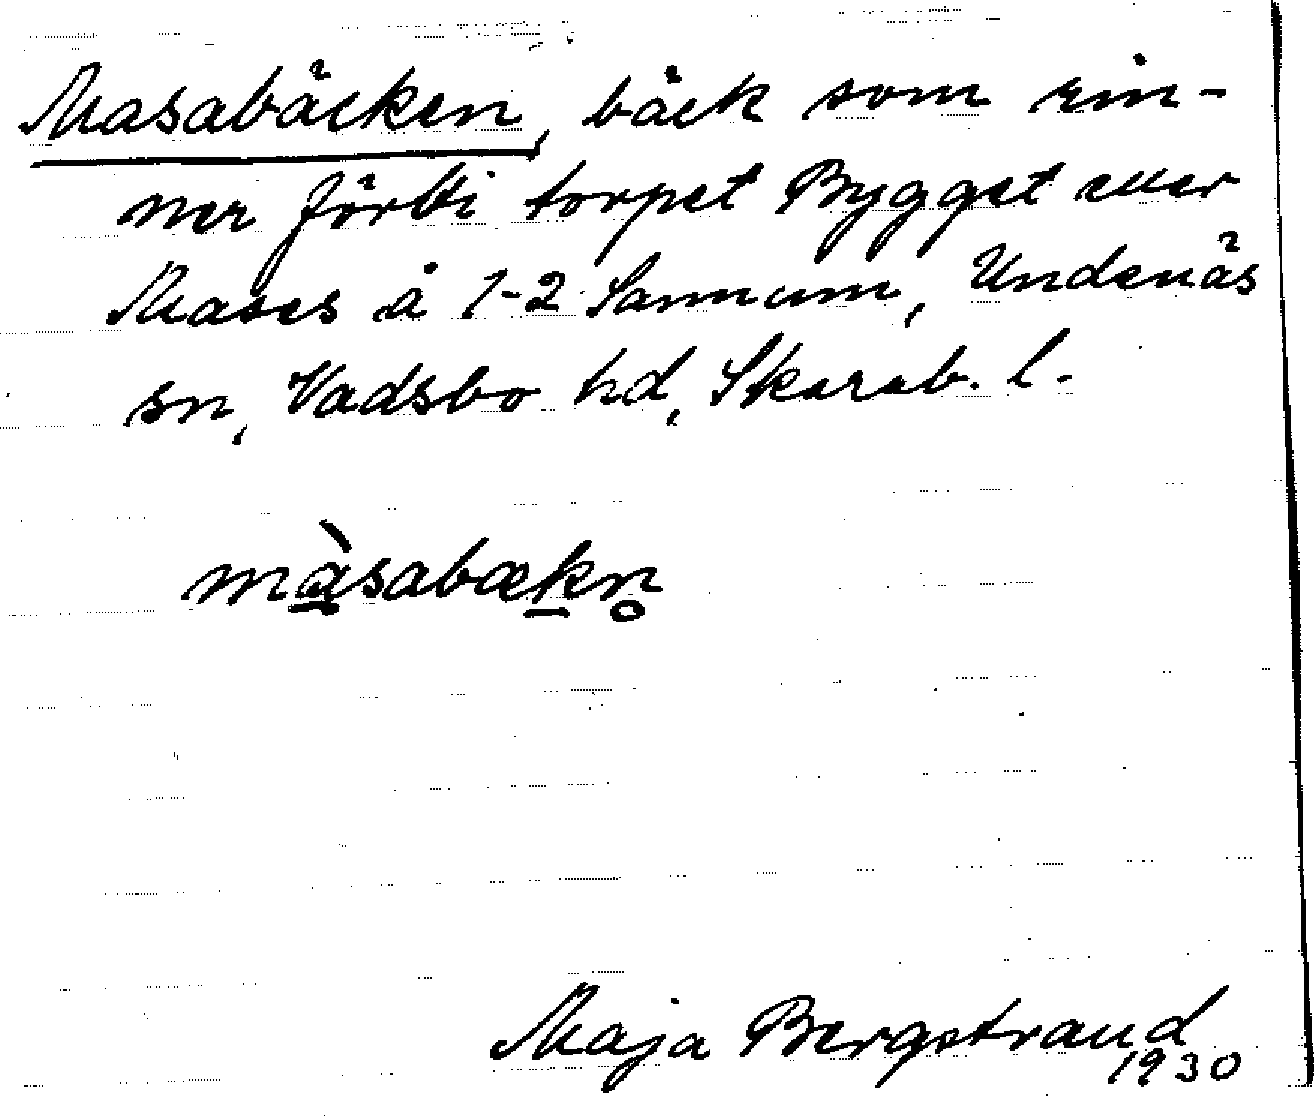 Masabäcken, bäck som rin-
ner förbi torpet Bygget eller
Mases å 1-2 Sannum, Undenäs
sn, Vadsbo hd, Skarab. l.
màsabækn̥
Maja Bergstrand
1930